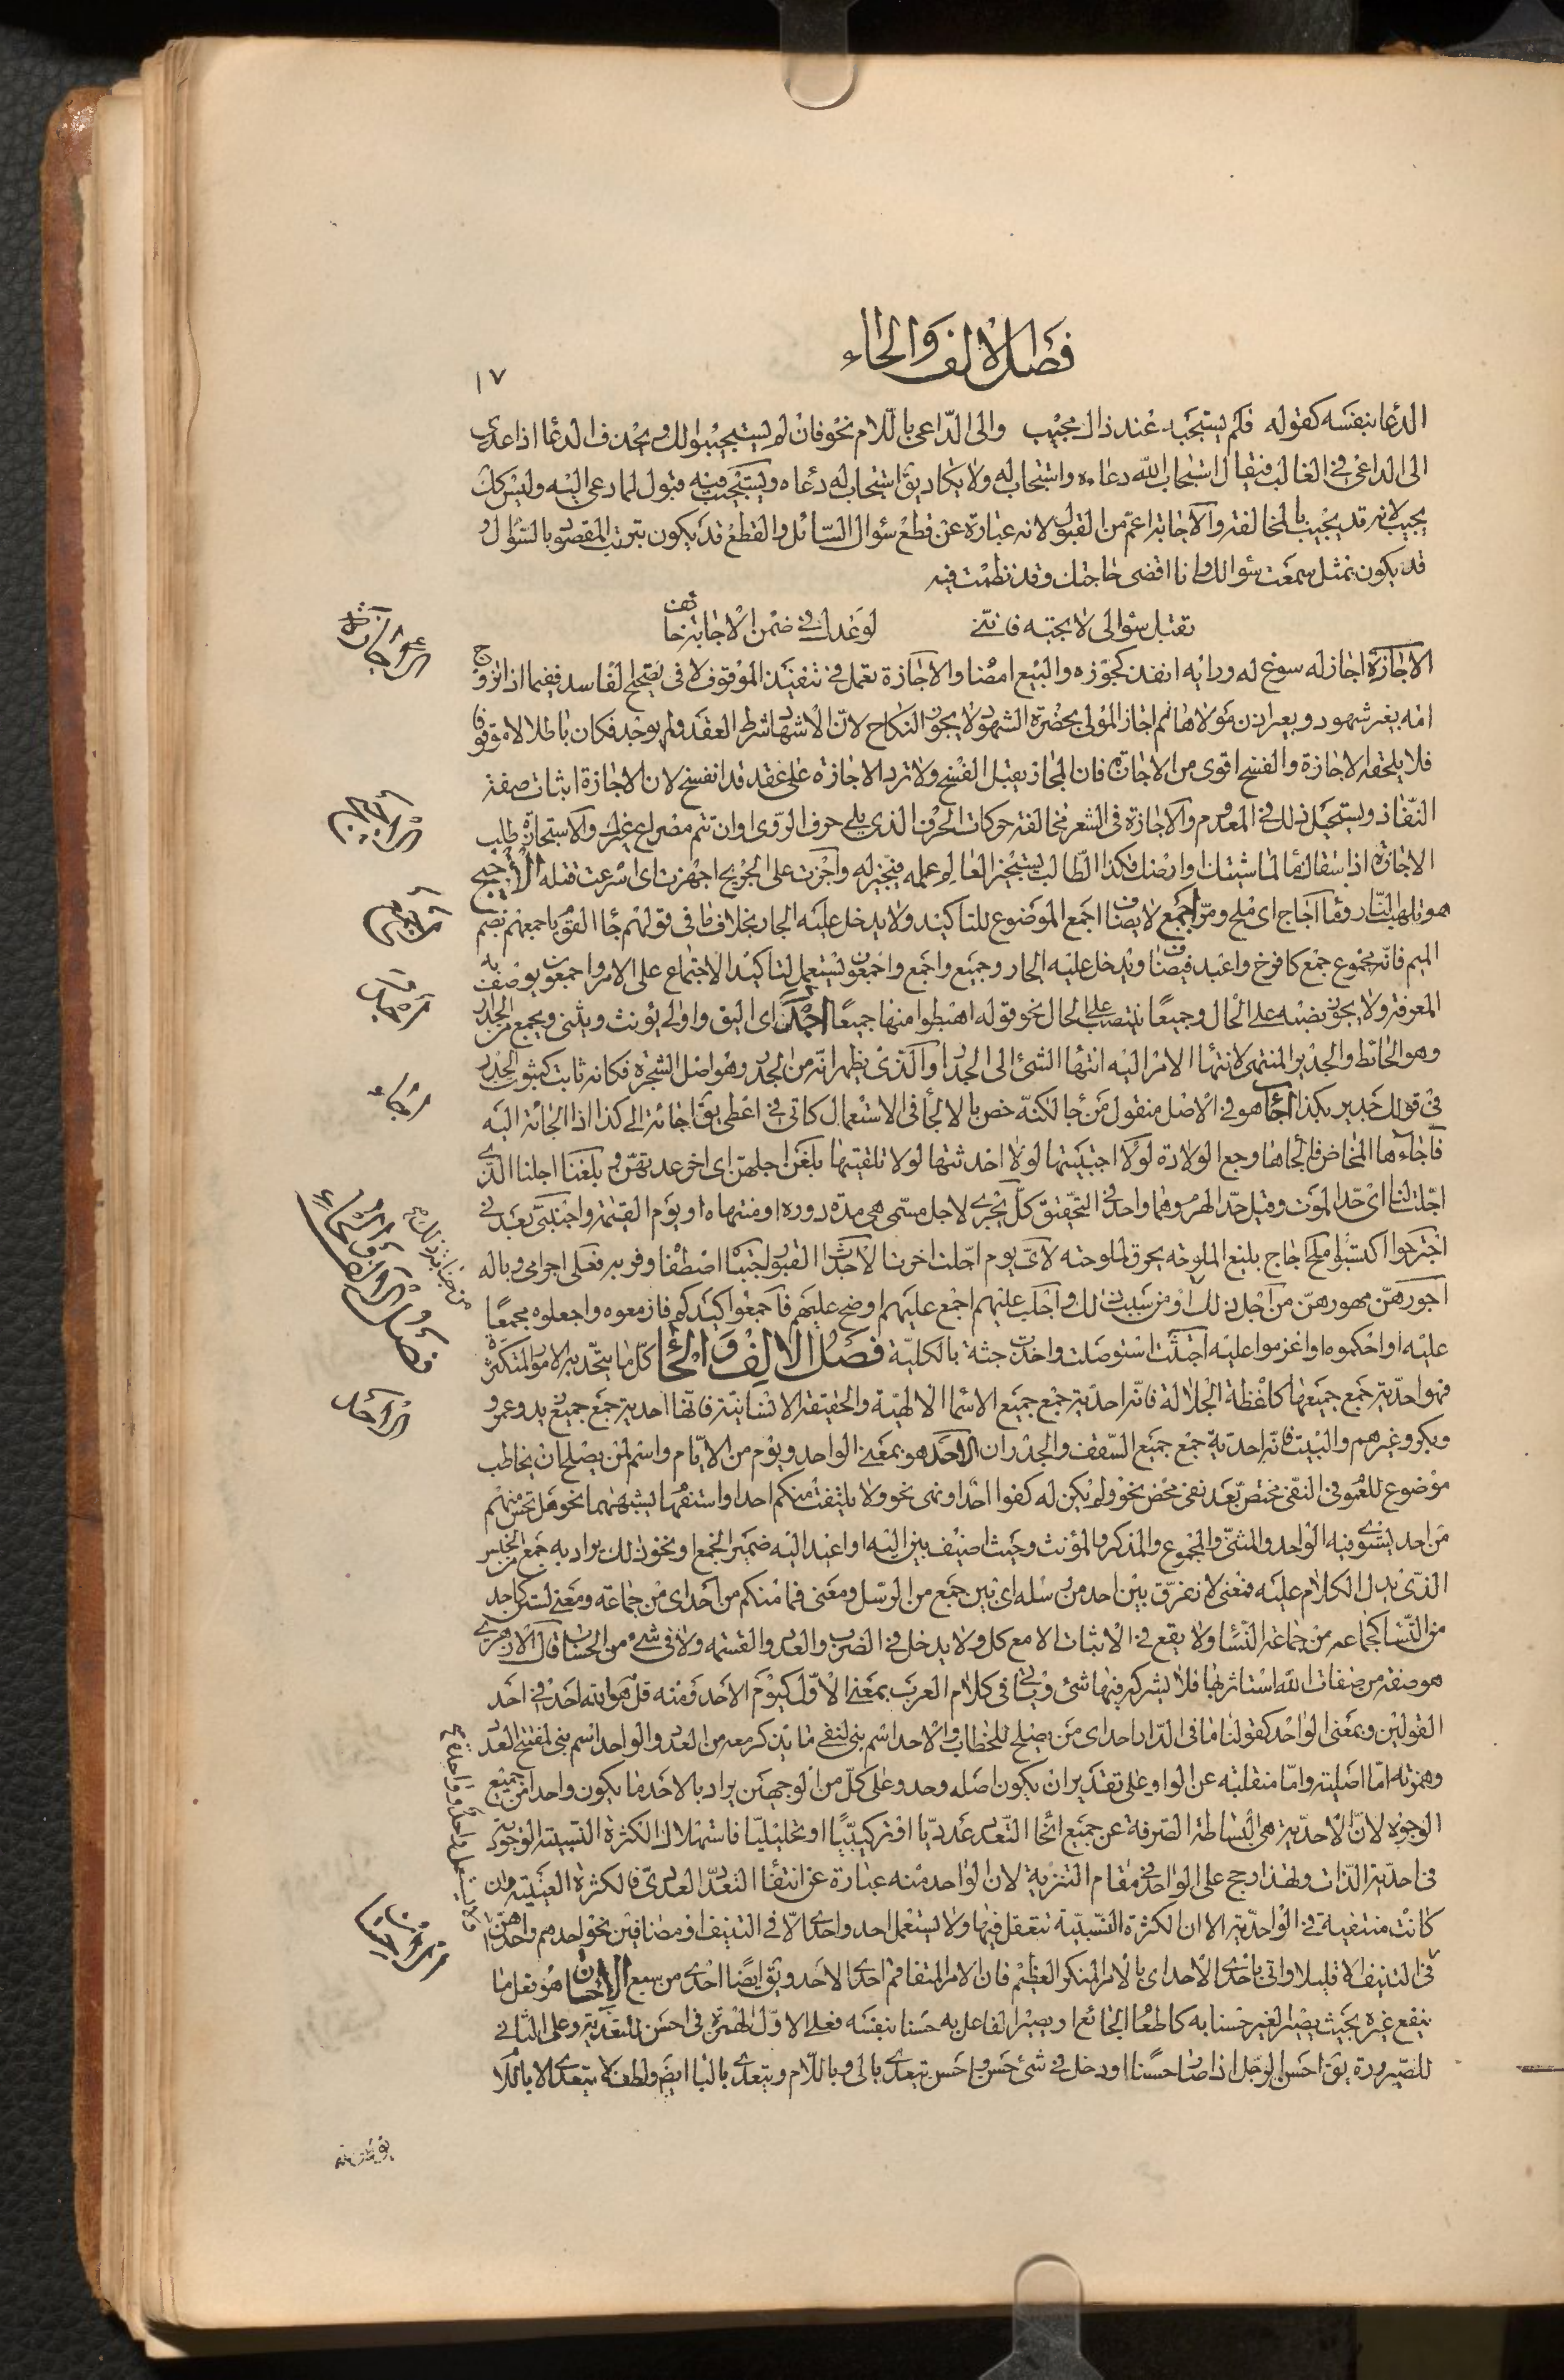 فصل الالف والحاء
١٧
الدعا بنفسه كقوله فلم يستجبه عند ذاك مجيب والى الداعى باللام نحو فان لم يستجيبوا لك ويحذف الدعا اذا عدى
الى الداعى فى الغالب فيقال استجاب الله دعاءه واستجاب له ولا يكاد يق استجاب له دعاه ويستجيب فيه قبول لما دعى اليه وليس كك
يجيب لانه قد يجيب بالمخالفة والاجابة اعم من القبول لانه عبارة عن قطع سؤال السائل والقطع قد يكون بترتب المقصود بالسؤال و
قد يكون بمثل سمعت سؤالك وانا اقضى حاجتك وقد نظمت فيه
تقبل سؤالى لا تجبه فاننى لوعدك فى ضمن الاجابة خائف
الاجازة اجاز له سوغ له ورايه انفذ كجوزه والبيع امضا والاجازة تعمل فى تنفيذ الموقوف لا فى تصحيح الفاسد ففيما اذا تزوج
امه بغير شهود وبغير اذن مولاها ثم اجاز المولى بحضرة الشهود لا يجوز النكاح لان الاشهاد شرط العقد ولم يوجد فكان باطلا لا موقوفا
فلا يلحقه الاجازة والفسخ اقوى من الاجازة فان المجاز يقبل الفسخ ولا ترد الاجازة على عقد قد انفسخ لان الاجازة اثبات صفة
النفاذ ويستحيل ذلك فى المعدوم والاجازة فى الشعر مخالفة حركات الحرف الذى يلى حرف الروى او ان تتم مصراع غيرك والاستجازة طلب
الاجازة اذا سقاك ماء لماشيتك وارضك فكذا الطالب يستجيز العالم علمه فيجيز له واجزت على الجريح اجهزت اى اسرعت قتله الاجيج
هو تلهب النار وماء اجاج اى ملح ومر اجمع لا يضاف اجمع الموضوع للتاكيد ولا يدخل عليه الجار بخلاف ما فى قولهم جاء القوم باجمعهم بضم
الميم فانه مجموع جمع كافرخ واعبد فيضاف ويدخل عليه الجار وجميع واجمع واجمعون يستعمل لتاكيد الاجتماع على الامر واجمعون يوصف به
المعرفة ولا يجوز نصبه على الحال وجميعا ينتصب على الحال نحو قوله اهبطوا منها جميعا اجدر اى اليق واولى يؤنث ويثنى ويجمع من الجدار
وهو الحائط والجدير المنتهى لانتهاء الامر اليه انتهاء الشئ الى الجدار والذى يظهر انه من الجدر وهو اصل الشجرة فكانه ثابت كثبوت الجدر
فى قولك جدير بكذا اجاء هو فى الاصل منقول من جا لكنه خص بالالجاء فى الاستعمال كاتى فى اعطى يق اجاته الى كذا اذا الجاته اليه
فاجاءها المخاض فالجاها وجع الولادة لولا اجتبيتها لولا احدثتها لولا تلقيتها بلغن اجلهن اى اخر عدتهن و بلغنا اجلنا الذى
اجلت لنا اى حد الموت وقيل حد الهرم وهما واحد فى التحقيق كل يجرى لاجل مسمى هى مدة دوره او منتهاه او يوم القيمة واجنبنى بعدنى
اجترحوا اكتسبوا ملح اجاج بليغ الملوحة يحرق لملوحته لاى يوم اجلت اخرت الاجداث القبور اجتبيناه اصطفاه وقربه فعلى اجرامى وباله
اجورهن مهورهن من اجل ذلك او من سببت ذلك واجلب عليهم اجمع عليهم او صح عليهم فاجمعوا كيدكم فازمعوه واجعلوه مجمعا
عليه او احكموه او اعزموا عليه اجتثت استوصلت واخذت جثة بالكلية فصل الالف والحاء كل ما يتحد به الامور المتكثرة
فهو احدية جمع جميعها كلفظة الجلالة فانه احدية جمع جميع الاسماء الالهية والحقيقة الانسانية فانها احدية جمع جميع زيد وعمرو و
وبكر وغيرهم والبيت فانه احدية جمع جميع السقف والجدران الاحد هو بمعنى الواحد ويوم من الايام واسم لمن يصلح ان يخاطب
موضوع للعموم فى النفى مختص بعد نفى محض نحو ولم يكن له كفوا احد او نهى نحو ولا يلتفت منكم احد او استفهام يشبههما نحو هل تحس منهم
من احد يستوى فيه الواحد والمثنى والمجموع والمذكر والمؤنث وحيث اضيف بين اليه او اعيد اليه ضمير الجمع او نحو ذلك يراد به جمع من الجنس
الذى يدل الكلام عليه فمعنى لا نفرق بين احد من رسله اى بين جمع من الرسل ومعنى فما منكم من احد اى من جماعة ومعنى لستن كاحد
من النساء كجماعه من جماعة النساء ولا يقع فى الاثبات الا مع كل ولا يدخل فى الضرب والعدد والقسمه ولا فى شئ من الحساب قال الازهرى
هو صفة من صفات الله استاثر بها فلا يشركه فيها شئ وياتى فى كلام العرب بمعنى الاول كيوم الاحد ومنه قل هو الله احد فى احد
القولين وبمعنى الواحد كقولنا ما فى الدار احد اى من يصلح للخطاب والاحد اسم بنى لنفى ما يذكر معه من العدد والواحد اسم بنى لمفتتح العدد
وهمزته اما اصلية واما منقلبة عن الواو على تقدير ان يكون اصله وحد وعلى كل من الوجهين يراد بالاحد ما يكون واحدا من جميع
الوجوه لان الاحدية هى البساطة الصرفة عن جميع انحاء التعدد عدديا او تركيبيا او تحليليا فاستهلاك الكثرة النسبية الوجودية
فى احدية الذات ولهذا رجح على الواحد فى مقام التنزيه لان الواحد منه عبارة عن انتفاء التعدد العددى فالكثرة العينية وان
كانت منتفية فى الواحدية الا ان الكثرة النسبية تتعقل فيها ولا يستعمل احد واحدى الا فى التنييف او مضافين نحو احدهم واحدهن
فى التنييف الا قليلا واتى باحدى الاحد اى بالامر المنكر العظيم فان الامر المتفاقم احدى الاحد ويق ايضا احدى من سبع الاحسان هو نفع ما
ينفع غيره بحيث يصير الغير حسنا به كاطعام الجائع او يصير الفاعل به حسنا بنفسه فعلى الاول الهمزة فى احسن للتعدية وعلى الثانى
للصيرورة يق احسن الرجل اذا صار حسنا او دخل فى شئ حسن واحسن يتعدى بالى وباللام ويتعدى بالباء ايض ولطف لا يتعدى الا باللام
الاجازة
الاجيج
اجمع
اجدر
اجاء
فصل الالف والحاء
الاحد
الاحسان